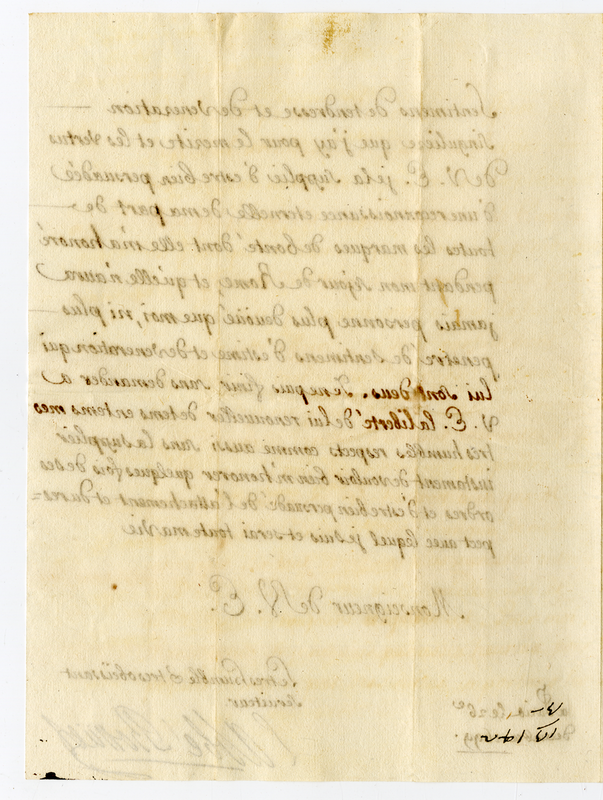 Sentimens de tendresse et de veneration
singuliere que j'ay pour le merite et les vertus
de V. E. je la supplie d'estre bien persuadée
d'une reconnoissance eternelle de ma part de
toutes les marques de bonté dont elle m'a honoré
pendant mon sejour de Rome et qu'elle n'aura
jamais personne plus devoüé que moi, ni plus
penetré de sentimens d'estime et de veneration qui
lui sont deus. Je ne puis finir sans demander a
V. E. la liberté de lui renouveller de tems en tems mes
tres humbles respects comme aussi sans la supplier
instament de vouloir bien m'honorer quelques fois de ses
ordres et d'estre bien persuadé de l'attachement et du res=
pect avec lequel je suis et serai toute ma vie
Monseigneur de V. E.
Le tres humble & tres obeissant
serviteur
le 26e